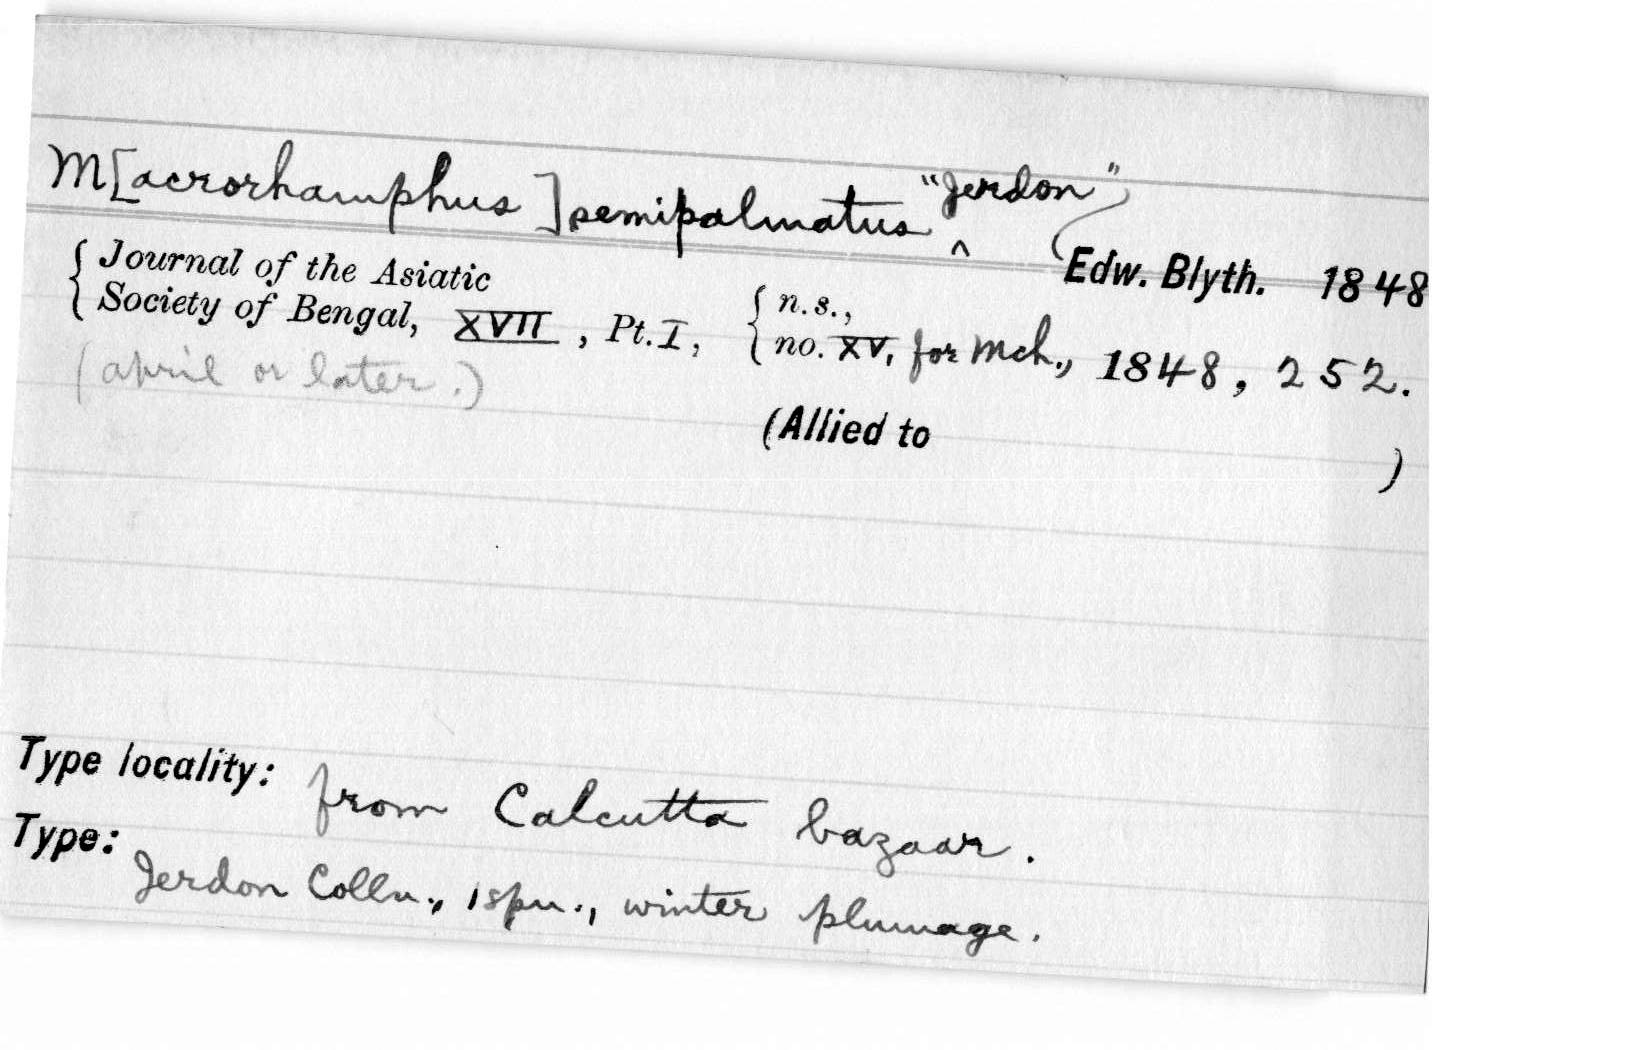 M[acrorhamphus] semipalmatus ^ "Jerdon"
Edw. Blyth. 1848
Journal of the Asiatic
Society of Bengal, XVII, Pt. I, { n.s.,
no. XV, for Mch., 1848, 252.
(april or later.)
(Allied to )
Type locality: from Calcutta bazaar.
Type: Jerdon Colln., 1 spn., winter plumage.